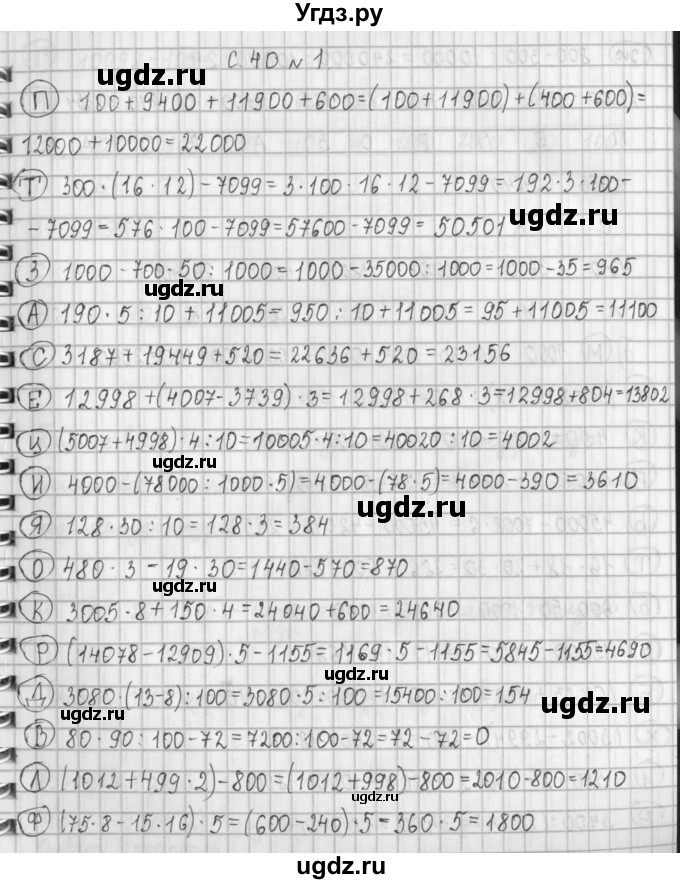 Угдз.ру
С. 40 № 1
П 100 + 9400 + 11900 + 600 = (100 + 11900) + (400 + 600) =
12000 + 10000 = 22000
Т 300 · (16 · 12) - 7099 = 3 · 100 · 16 · 12 - 7099 = 192 · 3 · 100 -
- 7099 = 576 · 100 - 7099 = 57600 - 7099 = 50501
З 1000 - 700 · 50 : 1000 = 1000 - 35000 : 1000 = 1000 - 35 = 965
А 190 · 5 : 10 + 11005 = 950 : 10 + 11005 = 95 + 11005 = 11100
С 3187 + 19449 + 520 = 22636 + 520 = 23156
Е 12998 + (4007 - 3739) · 3 = 12998 + 268 · 3 = 12998 + 804 = 13802
Ц (5007 + 4998) · 4 : 10 = 10005 · 4 : 10 = 40020 : 10 = 4002
И 4000 - (78000 : 1000 · 5) = 4000 - (78 · 5) = 4000 - 390 = 3610
Я 128 · 30 : 10 = 128 · 3 = 384
О 480 · 3 - 19 · 30 = 1440 - 570 = 870
К 3005 · 8 + 150 · 4 = 24040 + 600 = 24640
Р (14078 - 12909) · 5 - 1155 = 1169 · 5 - 1155 = 5845 - 1155 = 4690
Д 3080 · (13 - 8) : 100 = 3080 · 5 : 100 = 15400 : 100 = 154
В 80 · 90 : 100 - 72 = 7200 : 100 - 72 = 72 - 72 = 0
Л (1012 + 499 · 2) - 800 = (1012 + 998) - 800 = 2010 - 800 = 1210
Ф (75 · 8 - 15 · 16) · 5 = (600 - 240) · 5 = 360 · 5 = 1800
ugdz.ru
ugdz.ru
ugdz.ru
ugdz.ru
ugdz.ru
ugdz.ru
ugdz.ru
ugdz.ru
ugdz.ru
ugdz.ru
ugdz.ru
ugdz.ru
ugdz.ru
ugdz.ru